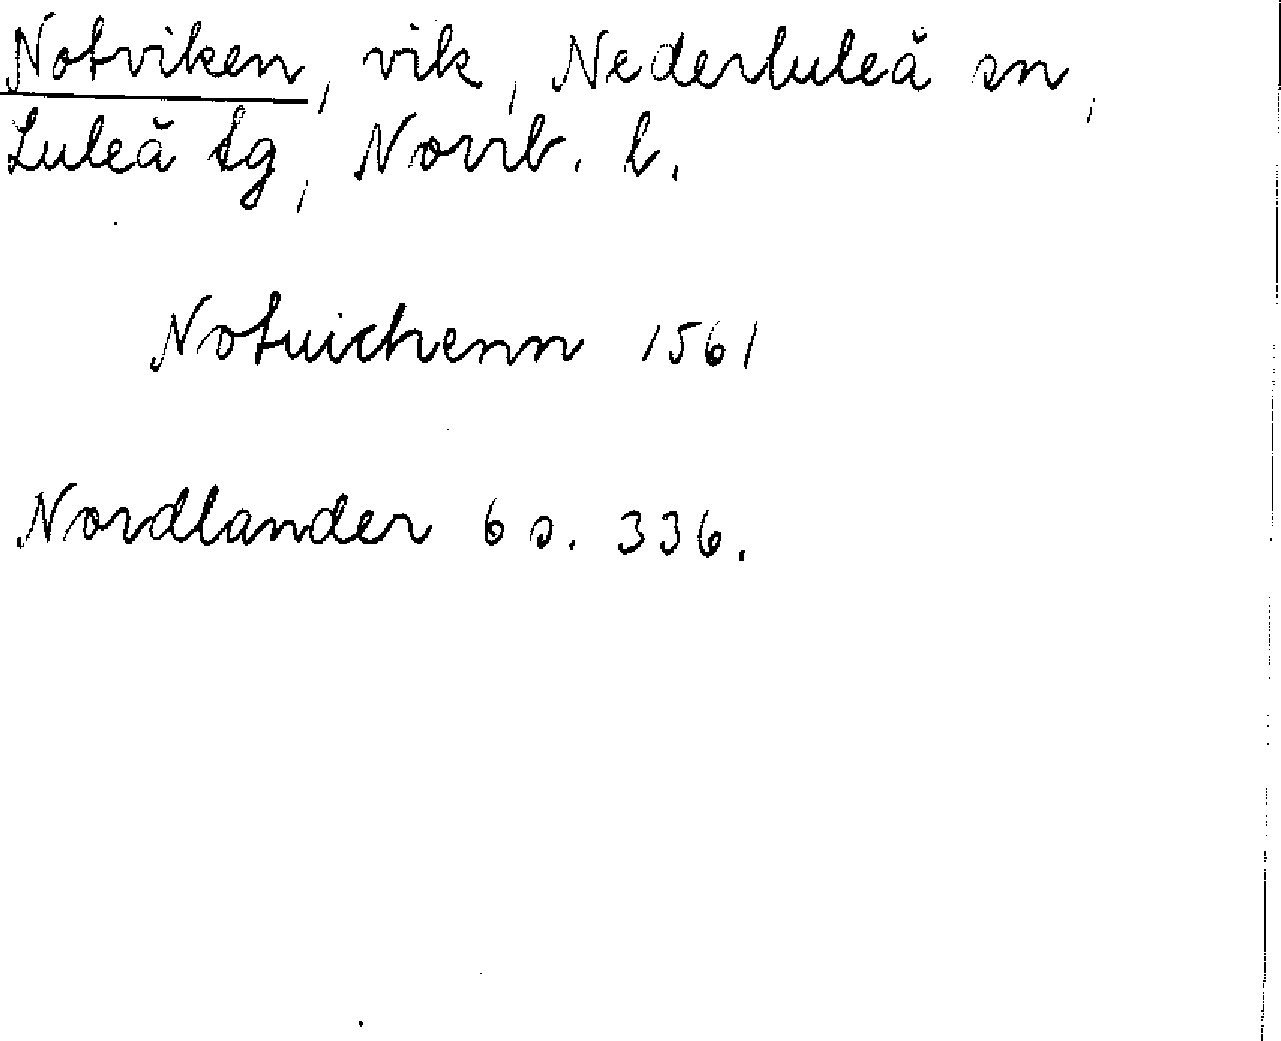 Notviken, vik, Nederluleå sn,
Luleå tg, Norrb. l.
Notuichenn 1561
Nordlander 6 s. 336.